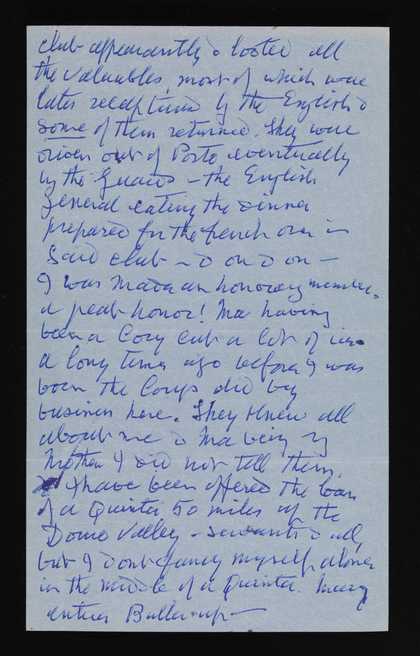 club apparently & looted all
the valuables, most of which were
later recaptured by the English &
some of them returned. They were
driven out of Porto eventually
by the – the English
General eating the dinner
prepared for the french over in
said club – & on & on –
I was made an honorary member.
a great honor! Ma having
been a Cory cut a lot of ice
a long time ago before I was
born the Corys did big
business here. They knew all
about me & Ma being my
Mother I did not tell them.
I have been offered the loan
of a Quinta 50 miles up the
Douro Valley – servants & all,
but I dont fancy myself alone
in the middle of a Quinta. Mary